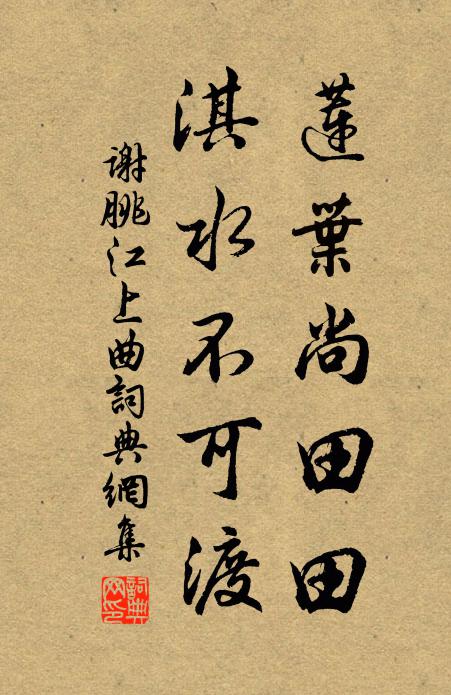 蓮葉尚田田
淇水不可渡
謝朓江上曲詞典網集
詞典網印